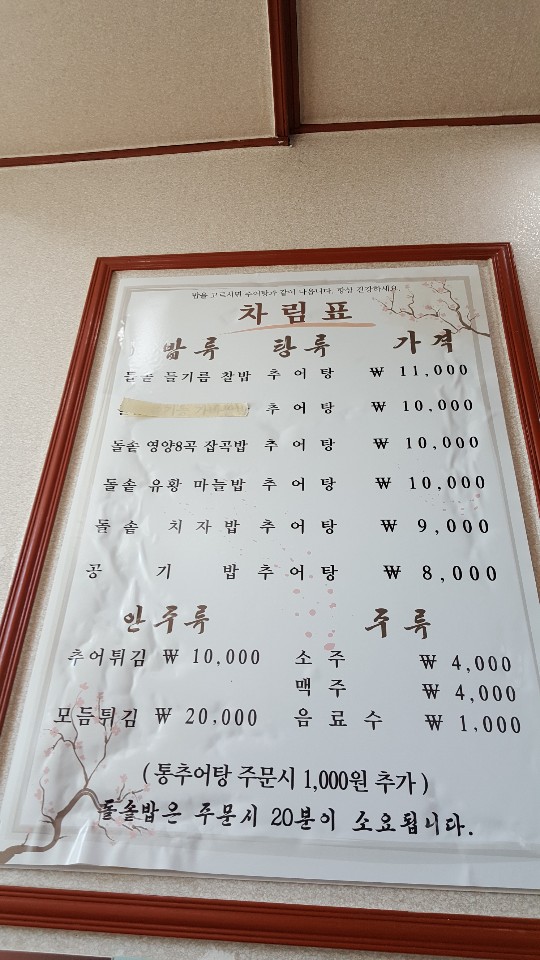 밥을 고르시면 추어탕과 같이 나옵니다. 항상 건강하세요.
차림표
밥류 탕류 가격
돌솥 들기름 찰밥 추어탕 ₩ 11,000
추어탕 ₩ 10,000
돌솥 영양8곡 잡곡밥 추어탕 ₩ 10,000
돌솥 유황 마늘밥 추어탕 ₩ 10,000
돌솥 치자밥 추어탕 ₩ 9,000
공기밥 추어탕 ₩ 8,000
안주류 주류
추어튀김 ₩ 10,000 소주 ₩ 4,000
맥주 ₩ 4,000
모듬튀김 ₩ 20,000 음료수 ₩ 1,000
(통추어탕 주문시 1,000원 추가)
돌솥밥은 주문시 20분이 소요됩니다.